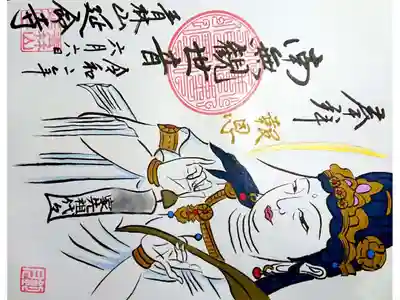 奉拝
報恩
南無觀世音
令和二年
六月六日
青林山延命寺
先祖代々